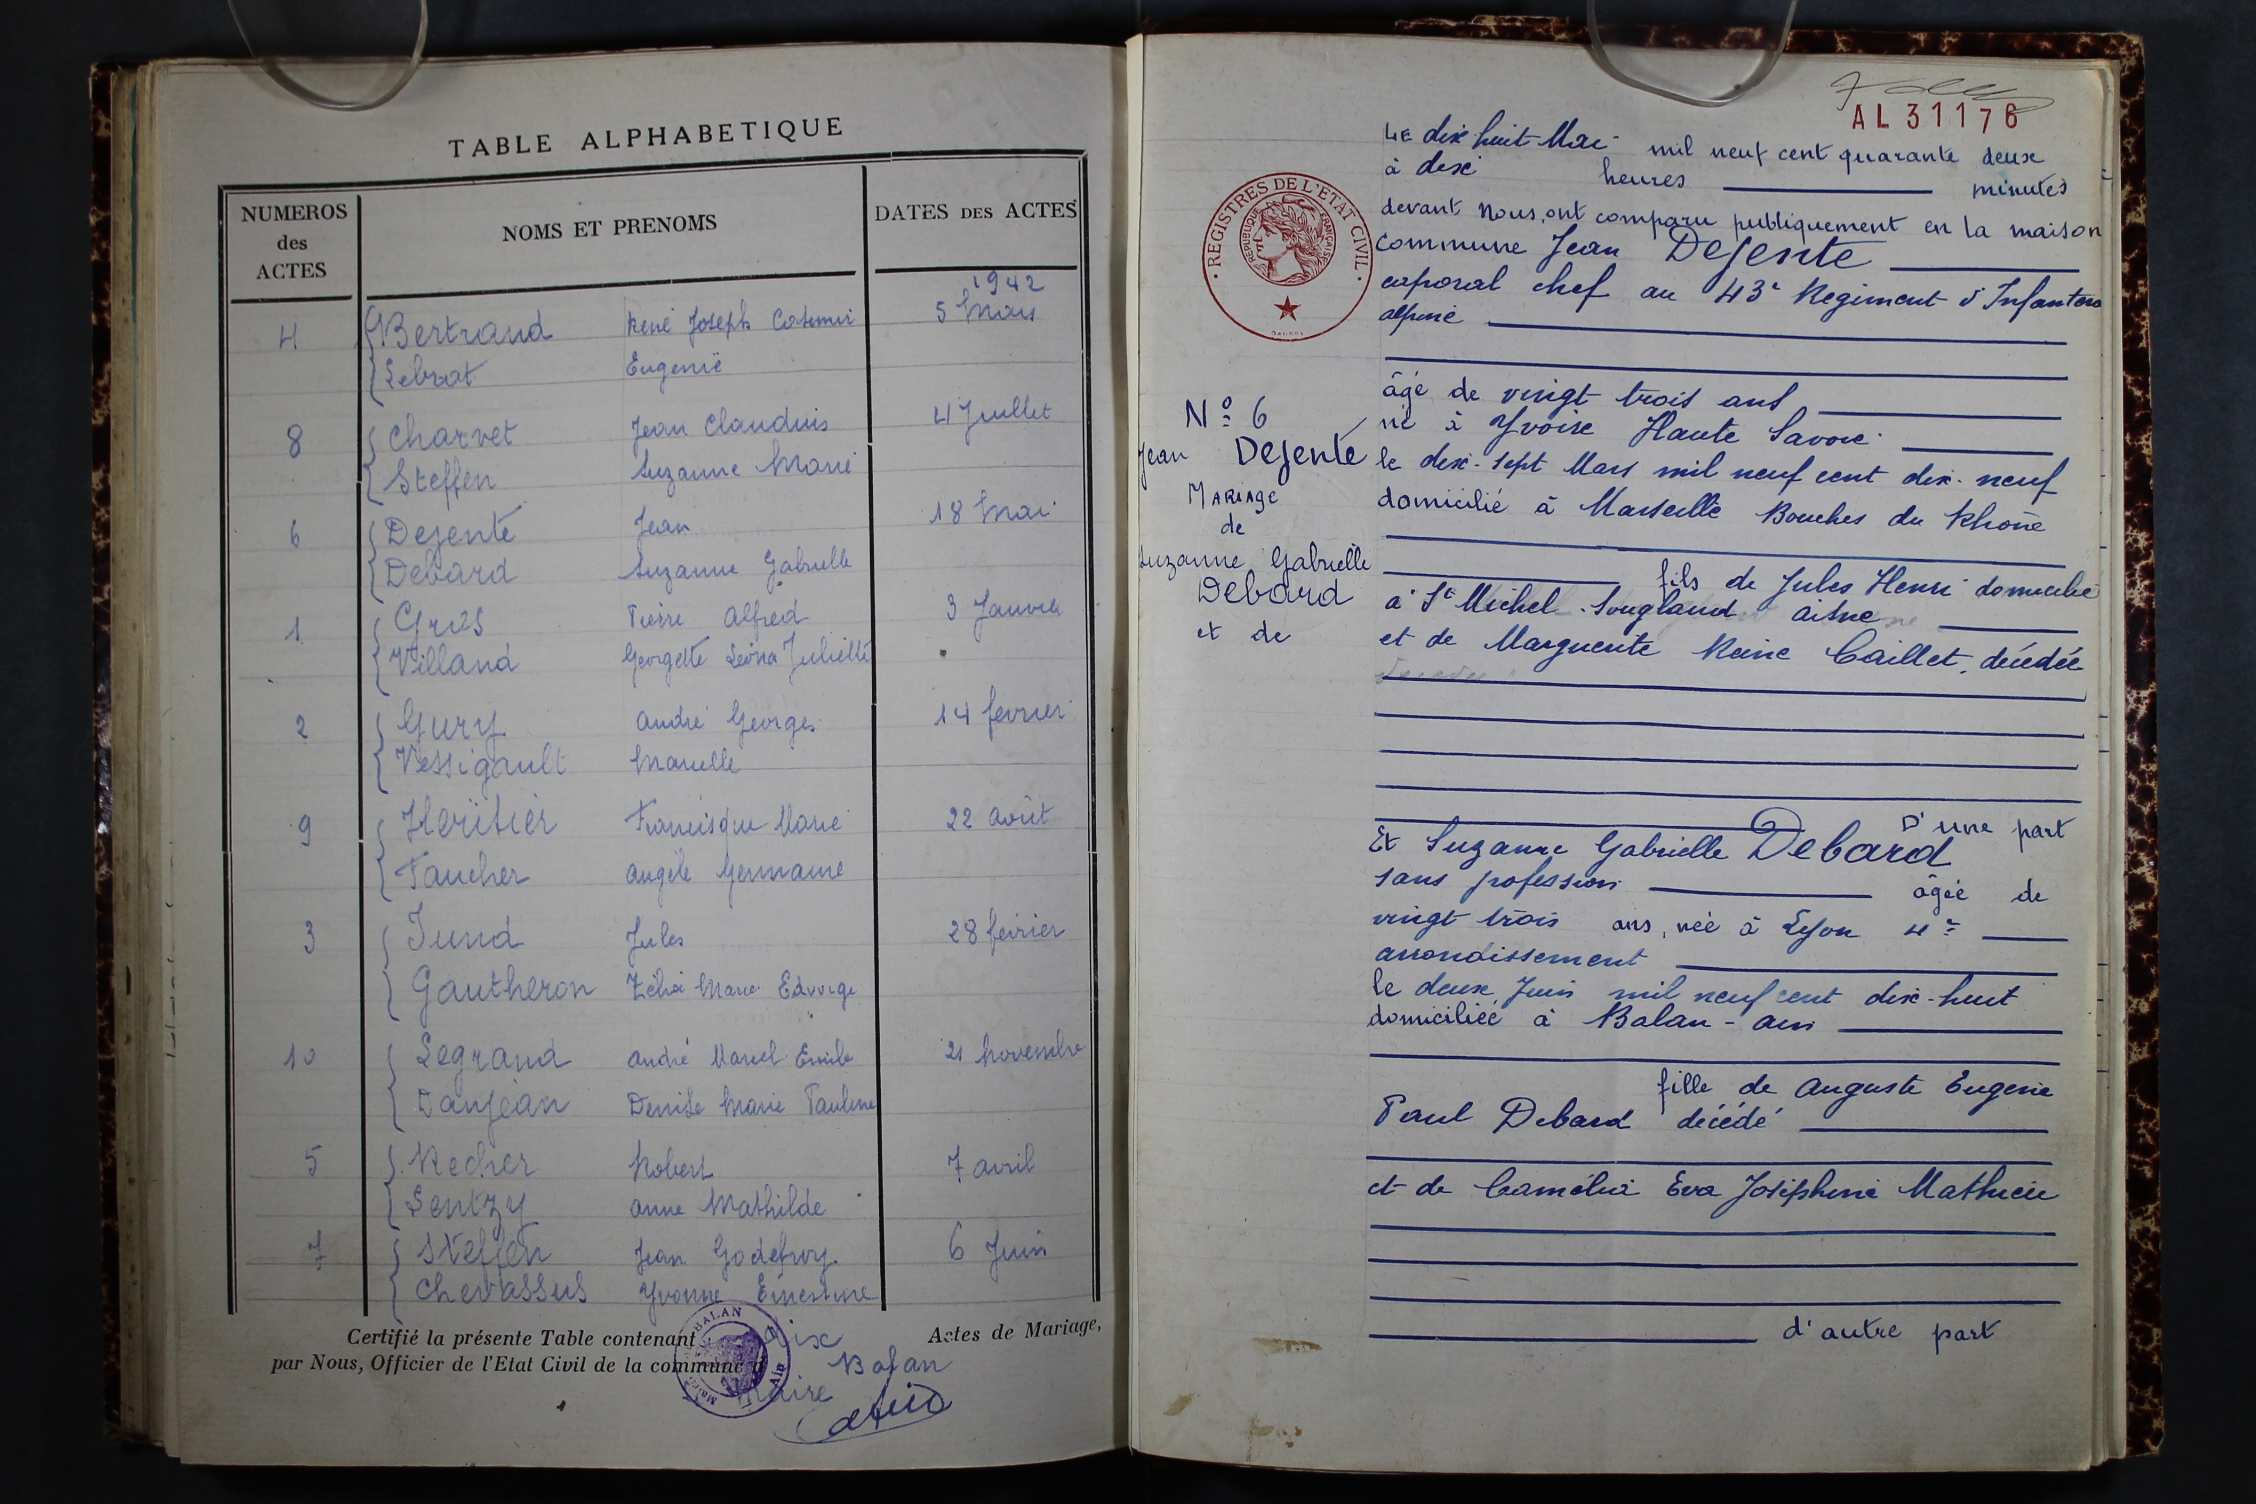 TABLE ALPHABETIQUE
NUMEROS des ACTES NOMS ET PRENOMS DATES DES ACTES
1942
4 Bertrand René Joseph Casimir 5 Mars
Lebrat Eugenie
8 Charvet Jean Claudius 4 Juillet
Steffen Suzanne Marie
6 Dejente Jean 18 Mai
Debard Suzanne Gabrielle
1 Gros Pierre Alfred 3 Janvier
Villand Georgette Léona Juliette
2 Gury André Georges 14 fevrier
Vessigault Marcelle
9 Héritier Francisque Marie 22 Août
Faucher Angèle Germaine
3 Jund Jules 28 février
Gautheron Zélia Marie Edwige
10 Legrand André Marcel Emile 21 Novembre
Danjean Denise Marie Pauline
5 Recher Robert 7 avril
Lentzy Anne Mathilde
7 Steffen Jean Godefroy 6 Juin
Chevassus Yvonne Ernestine
Certifié la présente Table contenant dix Actes de Mariage,
par Nous, Officier de l'Etat Civil de la commune d Balan
Maire
BALAN
Ain
AL 31176
REGISTRES DE L'ETAT CIVIL
REPUBLIQUE FRANÇAISE
N° 6
Jean Dejente
MARIAGE
de
Suzanne Gabrielle
Debard
et de
LE dix-huit Mai mil neuf cent quarante deux
à dix heures minutes
devant Nous, ont comparu publiquement en la maison
commune Jean Dejente
caporal chef au 43e Regiment d'Infanterie
alpine
âgé de vingt trois ans
né à Yvoire Haute Savoie
le dix-sept Mars mil neuf cent dix-neuf
domicilié à Marseille Bouches du Rhône
fils de Jules Henri domicilié
à St Michel-Sougland Aisne
et de Marguerite Reine Caillet, décédée
D'une part
Et Suzanne Gabrielle Debard
sans profession âgée de
vingt trois ans, née à Lyon 4e
arrondissement
le deux Juin mil neuf cent dix-huit
domiciliée à Balan - Ain
fille de Auguste Eugene
Paul Debard décédé
et de Camélia Eva Joséphine Mathieu
d'autre part